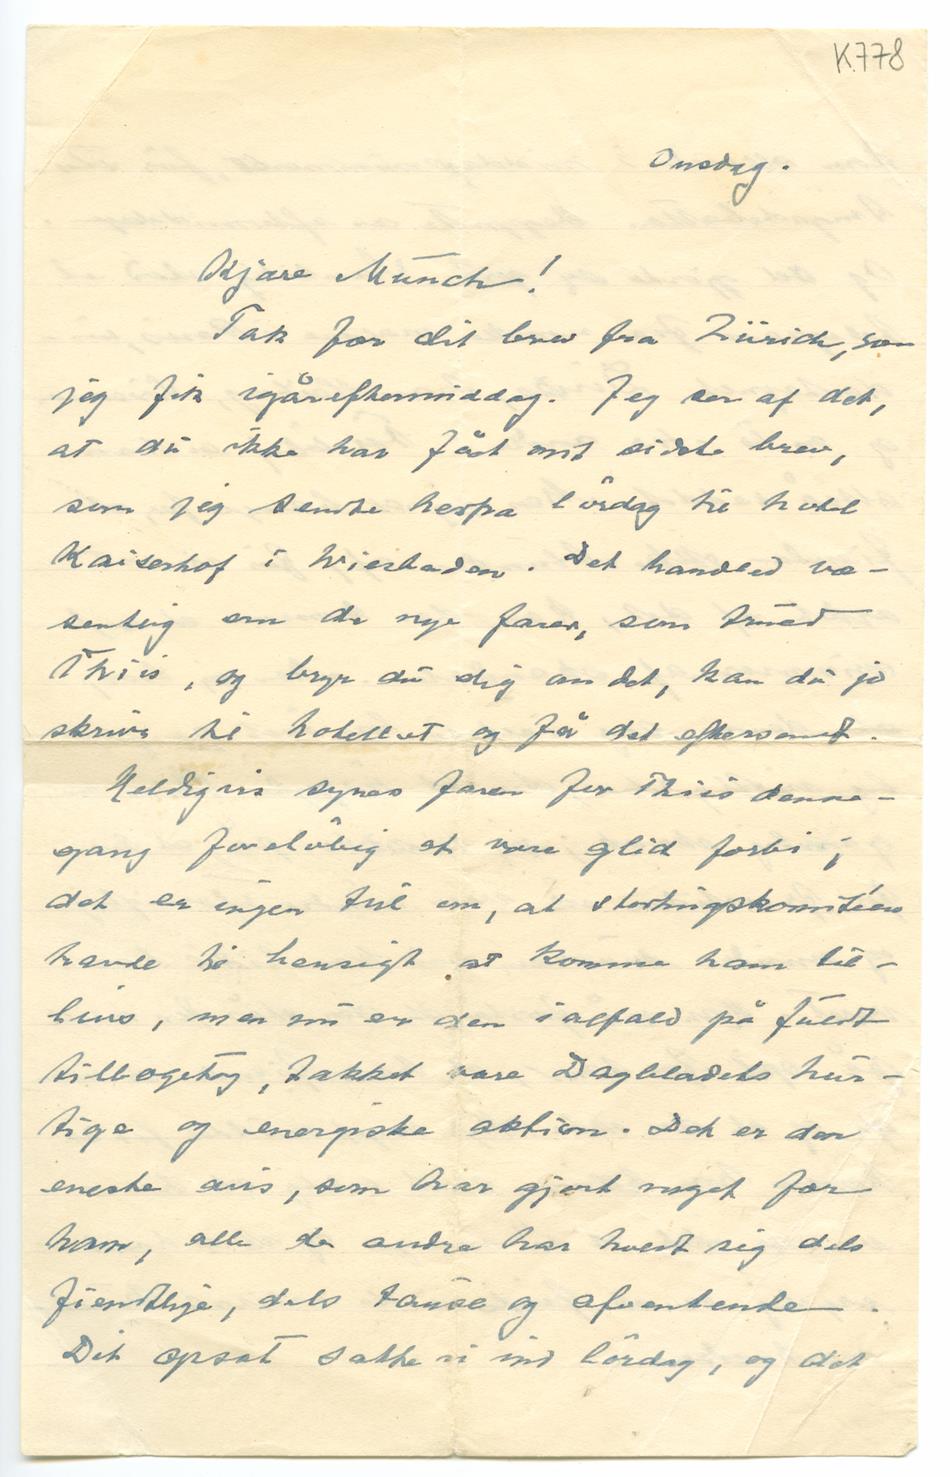 K.778
Onsdag.
Kjære Munch!
Tak for dit brev fra Zürich, som
jeg fik igåreftermiddag. Jeg ser af det,
at du ikke har fåt mit sidste brev,
som jeg sendte herfra lördag til hotel
Kaiserhof i Wiesbaden. Det handled væ-
sentlig om de nye farer, som trued
Thiis, og bryr du dig om det, kan du jo
skrive til hotellet og få det eftersendt.
Heldigvis synes faren for Thiis denne-
gang foreløbig at være glid forbi;
det er ingen tvil om, at stortingskomiteen
havde til hensigt at komme ham til-
livs, men nu er den ialfald på fuldt
tilbagetog, takket være Dagbladets hur-
tige og energiske aktion. Det er den
eneste avis, som har gjort noget for
ham, alle de andre har holdt sig dels
fiendtlige, dels tause og afventende.
Dit opsat satte vi ind lördag, og det